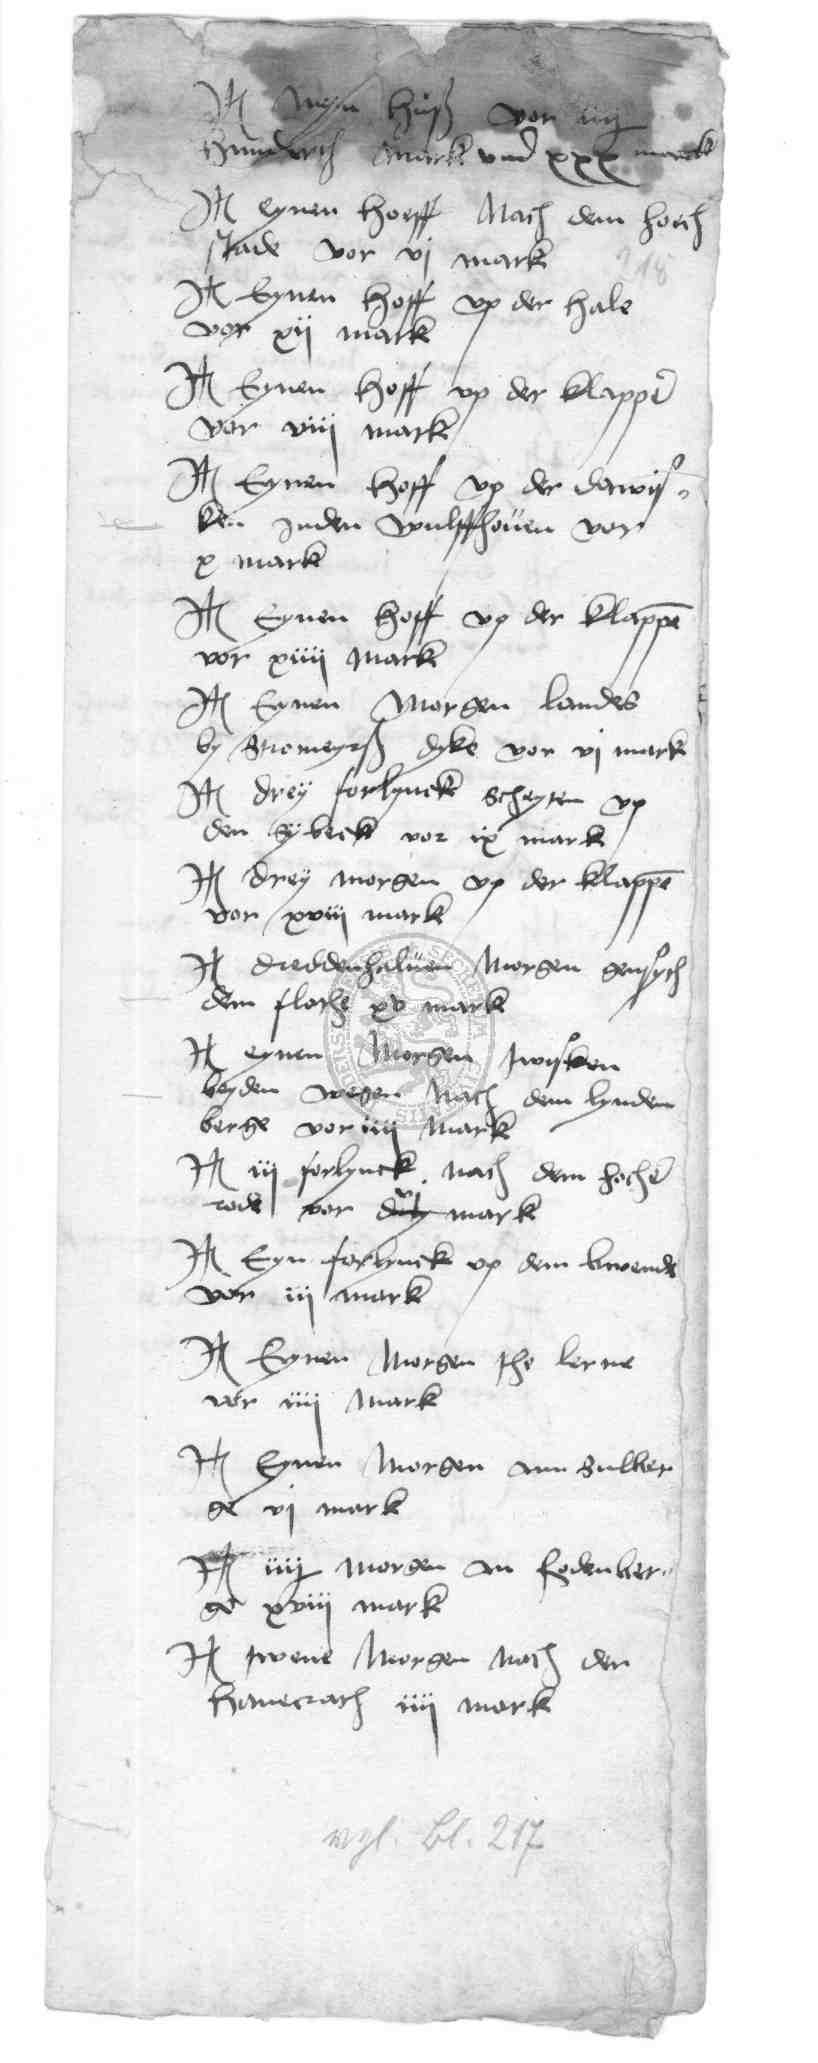 It meyn huß vor iiij
hunderth mark und xxx marck
It eynen hoeff Nach dem hoch
stade vor vj mark
218
It Eynen hoff up der hale
vor xij mark
It Eynen hoff up der klappe
vor viij mark
It Eynen hoff up der
ken Inden wulffhouen vor
x mark
It Eynen hoff up der klappe
vor xiiij mark
It Eynen Morgen landes
by dyke vor vj mark
It drey forlynck up
den vor ix mark
It drey morgen up der klappe
vor xviij mark
It dreddenhaluen Morgen
dem flothe xv mark
It eynen Morgen twisken
beyden wegen Nach dem lynden
berge vor iiij Mark
It iij forlynck nach dem
rode vor vj mark
It Eyn forlynck up dem
vor iij mark
It Eynen Morgen the lerne
vor iiij Mark
It Eynen Morgen am Sulber
ge vj mark
It iiij morgen am
ge xviij mark
It twene Morgen Nach der
iiij mark
vgl. Bl. 217